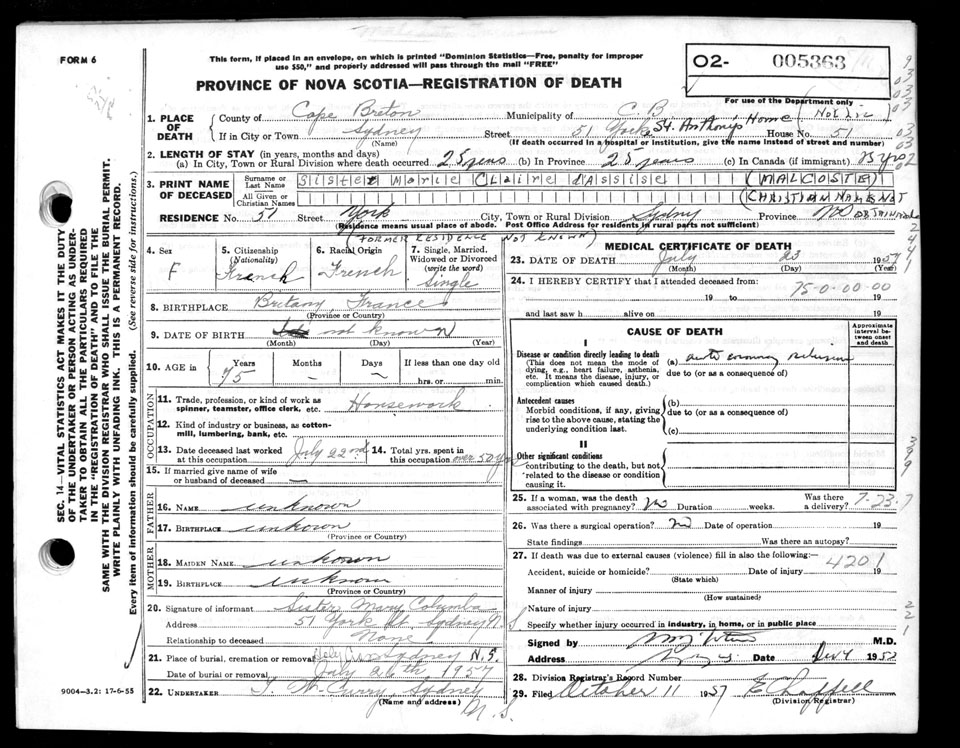 FORM 6
This form, if placed in an envelope, on which is printed "Dominion Statistics—Free, penalty for improper
use $50," and properly addressed will pass through the mail "FREE"
PROVINCE OF NOVA SCOTIA—REGISTRATION OF DEATH
O2- 005363
For use of the Department only
1. PLACE OF DEATH
County of Cape Breton Municipality of C. B
If in City or Town Sydney Street 51 York St. Anthony's Home House No. 51
(Name) (If death occurred in a hospital or institution, give the name instead of street and number)
2. LENGTH OF STAY (in years, months and days)
(a) In City, Town or Rural Division where death occurred 25 years (b) In Province 25 years (c) In Canada (if immigrant) 25 yrs
3. PRINT NAME OF DECEASED
Surname or Last Name Sister Marie Claire d'Assise (MALCOSTE)
All Given or Christian Names (CHRISTIAN NAMES NOT OBTAINABLE
RESIDENCE No. 51 Street York City, Town or Rural Division Sydney Province NS
(Residence means usual place of abode. Post Office Address for residents in rural parts not sufficient)
(FORMER RESIDENCE NOT KNOWN)
4. Sex F
5. Citizenship (Nationality) French
6. Racial Origin French
7. Single, Married, Widowed or Divorced (write the word) Single
8. BIRTHPLACE Britany France
(Province or Country)
9. DATE OF BIRTH not known
(Month) (Day) (Year)
10. AGE Years 75 Months — Days — If less than one day old
hrs. or min.
OCCUPATION
11. Trade, profession, or kind of work as spinner, teamster, office clerk, etc. Housework
12. Kind of industry or business, as cotton-mill, lumbering, bank, etc.
13. Date deceased last worked at this occupation July 22nd 14. Total yrs. spent in this occupation over 50 yrs
15. If married give name of wife or husband of deceased —
FATHER
16. NAME unknown
17. BIRTHPLACE unknown
(Province or Country)
MOTHER
18. MAIDEN NAME unknown
19. BIRTHPLACE unknown
(Province or Country)
20. Signature of informant Sister Mary Columba
Address 51 York St. Sydney N.S
Relationship to deceased None
21. Place of burial, cremation or removal Sydney N.S.
Date of burial or removal July 26th 1957
22. UNDERTAKER T. W. Curry, Sydney N.S.
(Name and address)
9004—3.2: 17-6-55
MEDICAL CERTIFICATE OF DEATH
23. DATE OF DEATH July 23 1957
(Month) (Day) (Year)
24. I HEREBY CERTIFY that I attended deceased from: 75-0-00-00
19 to 19
and last saw h alive on 19
CAUSE OF DEATH
Approximate interval between onset and death
I
Disease or condition directly leading to death
(This does not mean the mode of dying, e.g., heart failure, asthenia, etc. It means the disease, injury, or complication which caused death.)
(a) acute coronary occlusion
due to (or as a consequence of)
Antecedent causes
Morbid conditions, if any, giving rise to the above cause, stating the underlying condition last.
(b)
due to (or as a consequence of)
(c)
II
Other significant conditions
contributing to the death, but not related to the disease or condition causing it.
25. If a woman, was the death associated with pregnancy? No Duration weeks. Was there a delivery? 7-23-7
26. Was there a surgical operation? No Date of operation 19
State findings Was there an autopsy?
27. If death was due to external causes (violence) fill in also the following:—
4201
Accident, suicide or homicide? Date of injury 19
(State which)
Manner of injury
(How sustained)
Nature of injury
Specify whether injury occurred in industry, in home, or in public place
Signed by M.D.
Address Date 1952
28. Division Registrar's Record Number
29. Filed October 11 1957
(Division Registrar)
SEC. 14—VITAL STATISTICS ACT MAKES IT THE DUTY
OF THE UNDERTAKER OR PERSON ACTING AS UNDER-
TAKER TO OBTAIN ALL THE PARTICULARS REQUIRED
IN THE "REGISTRATION OF DEATH" AND TO FILE THE
SAME WITH THE DIVISION REGISTRAR WHO SHALL ISSUE THE BURIAL PERMIT.
WRITE PLAINLY WITH UNFADING INK. THIS IS A PERMANENT RECORD.
Every item of information should be carefully supplied. (See reverse side for instructions.)